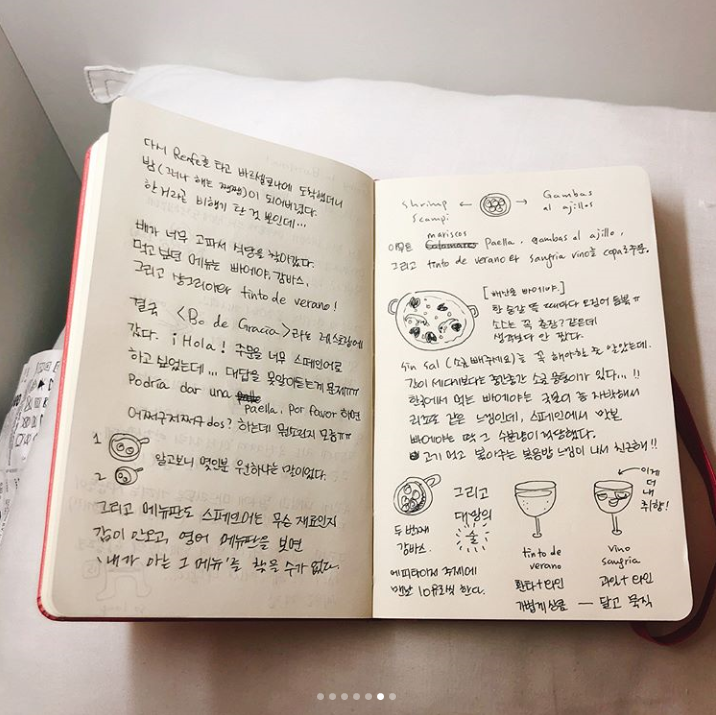 다시 Renfe를 타고 바르셀로나에 도착했더니
밤(그러나 해는 쨍쨍)이 되어버렸다.
한 거라곤 비행기 탄 것 뿐인데...
배가 너무 고파서 식당을 찾아갔다.
먹고 싶던 메뉴는 빠에야, 감바스,
그리고 샹그리아와 tinto de verano!
결국 <Bo de Gracia>라는 레스토랑에
갔다. ¡Hola! 주문을 너무 스페인어로
하고 싶었는데... 대답을 못알아듣는게 문제ㅠㅠ
Podría dar una paella, por favor 하면
어쩌구저쩌구 dos? 하는데 뭔소린지 모름ㅠㅠ
1
2
알고보니 몇인분 원하냐는 말이었다.
그리고 메뉴판도 스페인어는 무슨 재료인지
감이 안오고, 영어 메뉴판을 보면
'내가 아는 그 메뉴'를 찾을 수가 없다.
Shrimp Scampi ← → Gambas al ajillos
mariscos
이곳은 Paella, gambas al ajillo,
그리고 tinto de verano와 sangria vino를 copa로 주문.
[해산물 빠에야]
한 숟갈 뜰 때마다 오징어 듬뿍ㅠ
소스는 꼭 춘장? 같은데
생각보다 안 짰다.
Sin sal (소금 빼주세요)을 꼭 해야하는 줄 알았는데.
간이 세다기보다는 중간중간 소금 뭉텅이가 있다...!!
한국에서 먹는 빠에야는 국물이 좀 자작해서
리조또 같은 느낌인데, 스페인에서 맛본
빠에야는 딱 그 수분감이 적당했다.
고기 먹고 볶아주는 볶음밥 느낌이 나서 친근해!!
두번째
감바스.
에피타이저 주제에
맨날 10유로씩 한다.
그리고
대망의
술
tinto de
verano
환타+와인
가볍게 상큼
이게
더
내
취향!
vino
sangria
과일+와인
— 달고 묵직